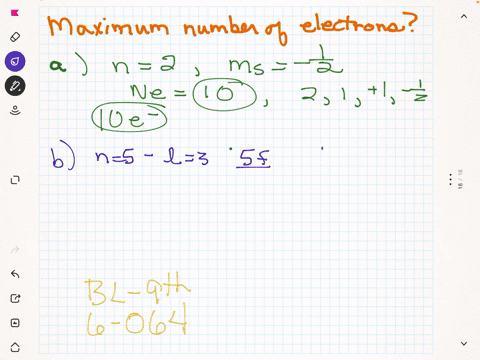 Maximum number of electrons?
a) n = 2, ms = -1/2
Ne = 10, 2, 1, +1, -1/2
10e⁻
b) n=5 - l=3 5f
BL-9th
6-064